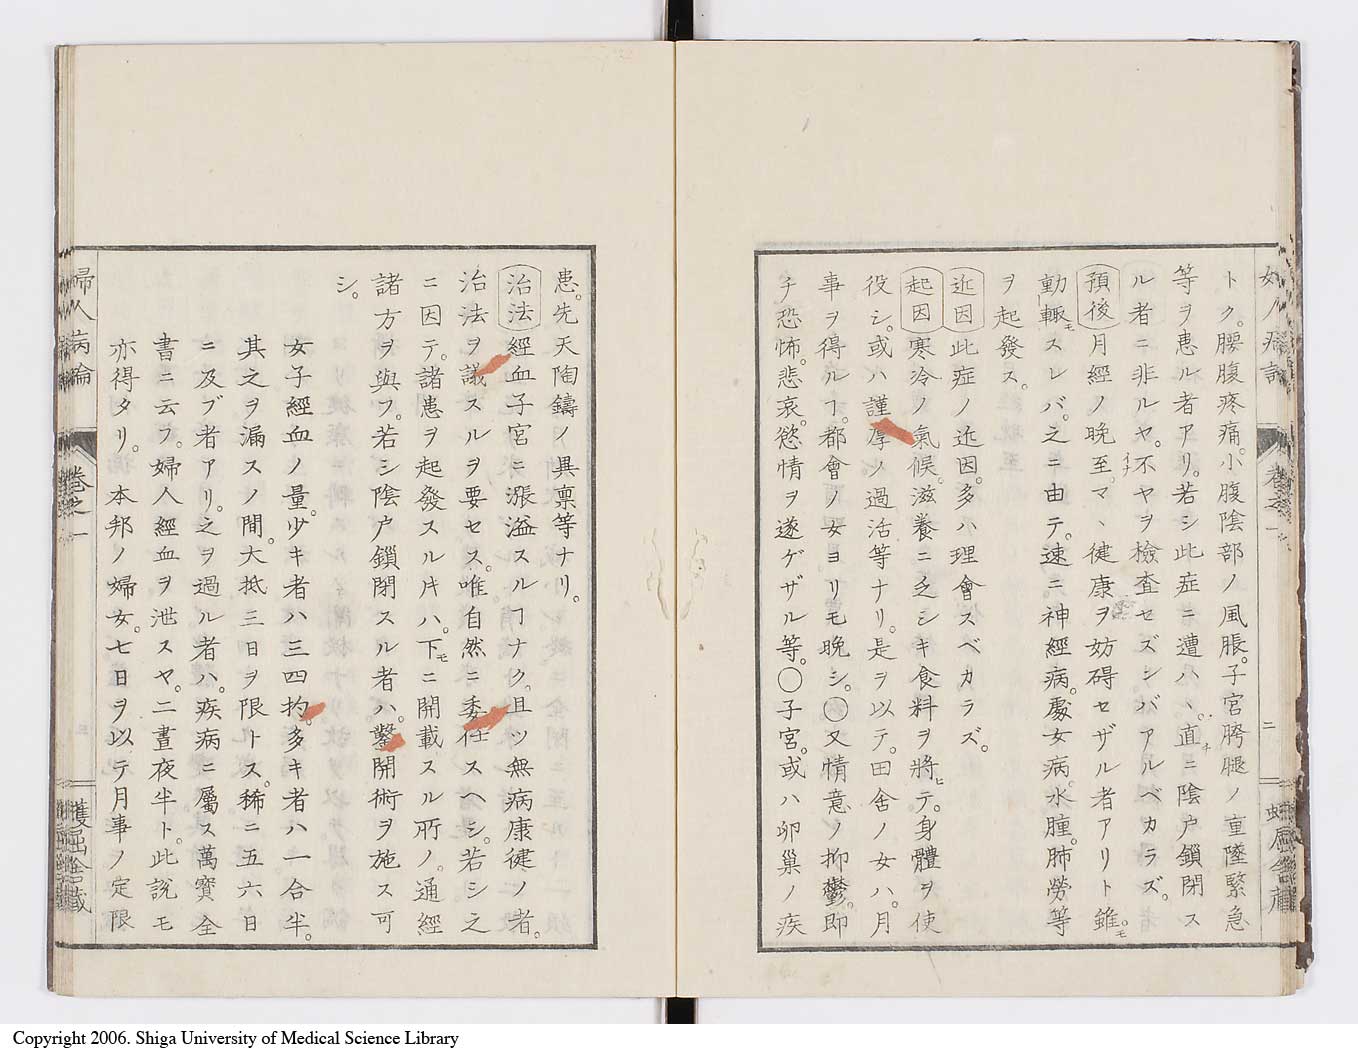 トク。腰腹疼痛。小腹陰部ノ風脹。子宮胯腿ノ重墜緊急
等ヲ患ル者アリ。若シ此症ニ遭ハヾ、直チニ陰戸鎖閉ス
ル者ニ非ルヤ。不ヤヲ檢査セズンバアルベカラズ。
預後 月經ノ晩至。マヽ徤康ヲ妨碍セザル者アリト雖モ。
動輙モスレバ。之ニ由テ。速ニ神經病。處女病。水腫。肺勞等
ヲ起發ス。
近因 此症ノ近因。多ハ理會スベカラズ。
起因 寒冷ノ氣候。滋養ニ乏シキ食料ヲ將ヒテ。身體ヲ使
役シ。或ハ謹厚ノ過活等ナリ。是ヲ以テ。田舍ノ女ハ。月
事ヲ得ルヿ。都會ノ女ヨリモ晩シ。〇又情意ノ抑鬱。即
チ恐怖。悲哀。慾情ヲ遂ゲザル等。〇子宮。或ハ卵巢ノ疾
患。先天陶鑄ノ異禀等ナリ。
治法 經血子宮ニ漲溢スルヿナク。且ツ無病康徤ノ者。
治法ヲ議スルヲ要セス。唯自然ニ委任スヘシ。若シ之
ニ因テ。諸患ヲ起發スル片ハ。下モニ開載スル所ノ。通經
諸方ヲ與フ。若シ陰戸鎖閉スル者ハ。鑿開術ヲ施ス可
シ。
女子經血ノ量。少キ者ハ三四扚。多キ者ハ一合半。
其之ヲ漏スノ間。大抵三日ヲ限トス。稀ニ五六日
ニ及ブ者アリ。之ヲ過ル者ハ。疾病ニ屬ス萬寶全
書ニ云フ。婦人經血ヲ泄スヤ。二晝夜半ト。此説モ
亦得タリ。本邦ノ婦女。七日ヲ以テ月事ノ定限
婦人病論 卷之一
Copyright 2006. Shiga University of Medical Science Library